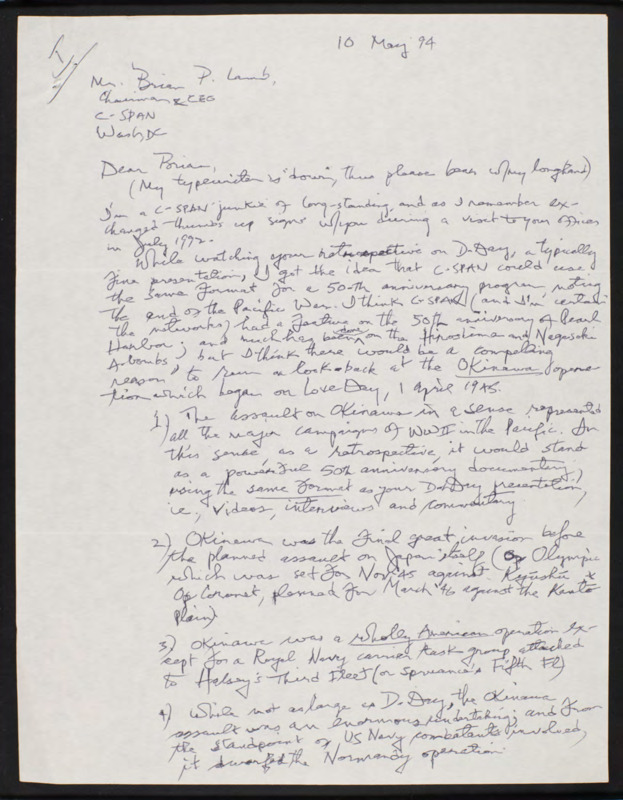 10 May 94
Mr. Brian P. Lamb,
Chairman & CEO
C-SPAN
Wash, DC
Dear Brian,
(My typewriter is "down", thus please bear w/my longhand)
I'm a C-SPAN junkie of long-standing, and as I remember ex-
changed thumbs up signs w/you during a visit to your offices
in July 1992.
While watching your retrospective on D-Day, a typically
fine presentation, I got the idea that C-SPAN could use
the same format for a 50th anniversary program, noting
the end of the Pacific War. I think C-SPAN (and I'm certain
the networks) had a feature on the 50th anniversary of Pearl
Harbor; and much has been done on the Hiroshima and Nagasaki
A-bombs; but I think there would be a compelling
reason to run a look-back at the Okinawa opera-
tion which began on Love Day, 1 April 1945.
1) The assault on Okinawa in a sense represented
all the major campaigns of WWII in the Pacific. In
this sense, as a retrospective, it would stand
as a powerful 50th anniversary documentary,
using the same format as your D-Day presentation,
ie, videos, interviews and commentary
2) Okinawa was the final great invasion before
the planned assault on Japan itself (Op Olympic
which was set for Nov '45 against Kyushu &
Op Coronet, planned for March '46 against the Kanto
Plain)
3) Okinawa was a wholly American operation ex-
cept for a Royal Navy carrier task group attached
to Halsey's Third Fleet (or Spruance's Fifth Flt)
4) While not as large as D-Day, the Okinawa
assault was an enormous undertaking; and from
the standpoint of US Navy combatants involved,
it dwarfed the Normandy operation